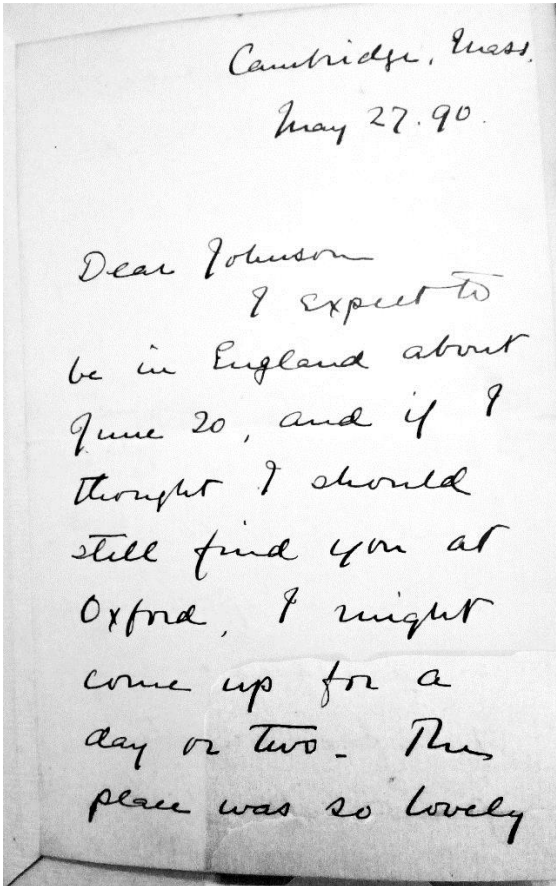 Cambridge, Mass.
May 27. 90.
Dear Johnson
I expect to
be in England about
June 20, and if I
thought I should
still find you at
Oxford, I might
come up for a
day or two. The
place was so lovely